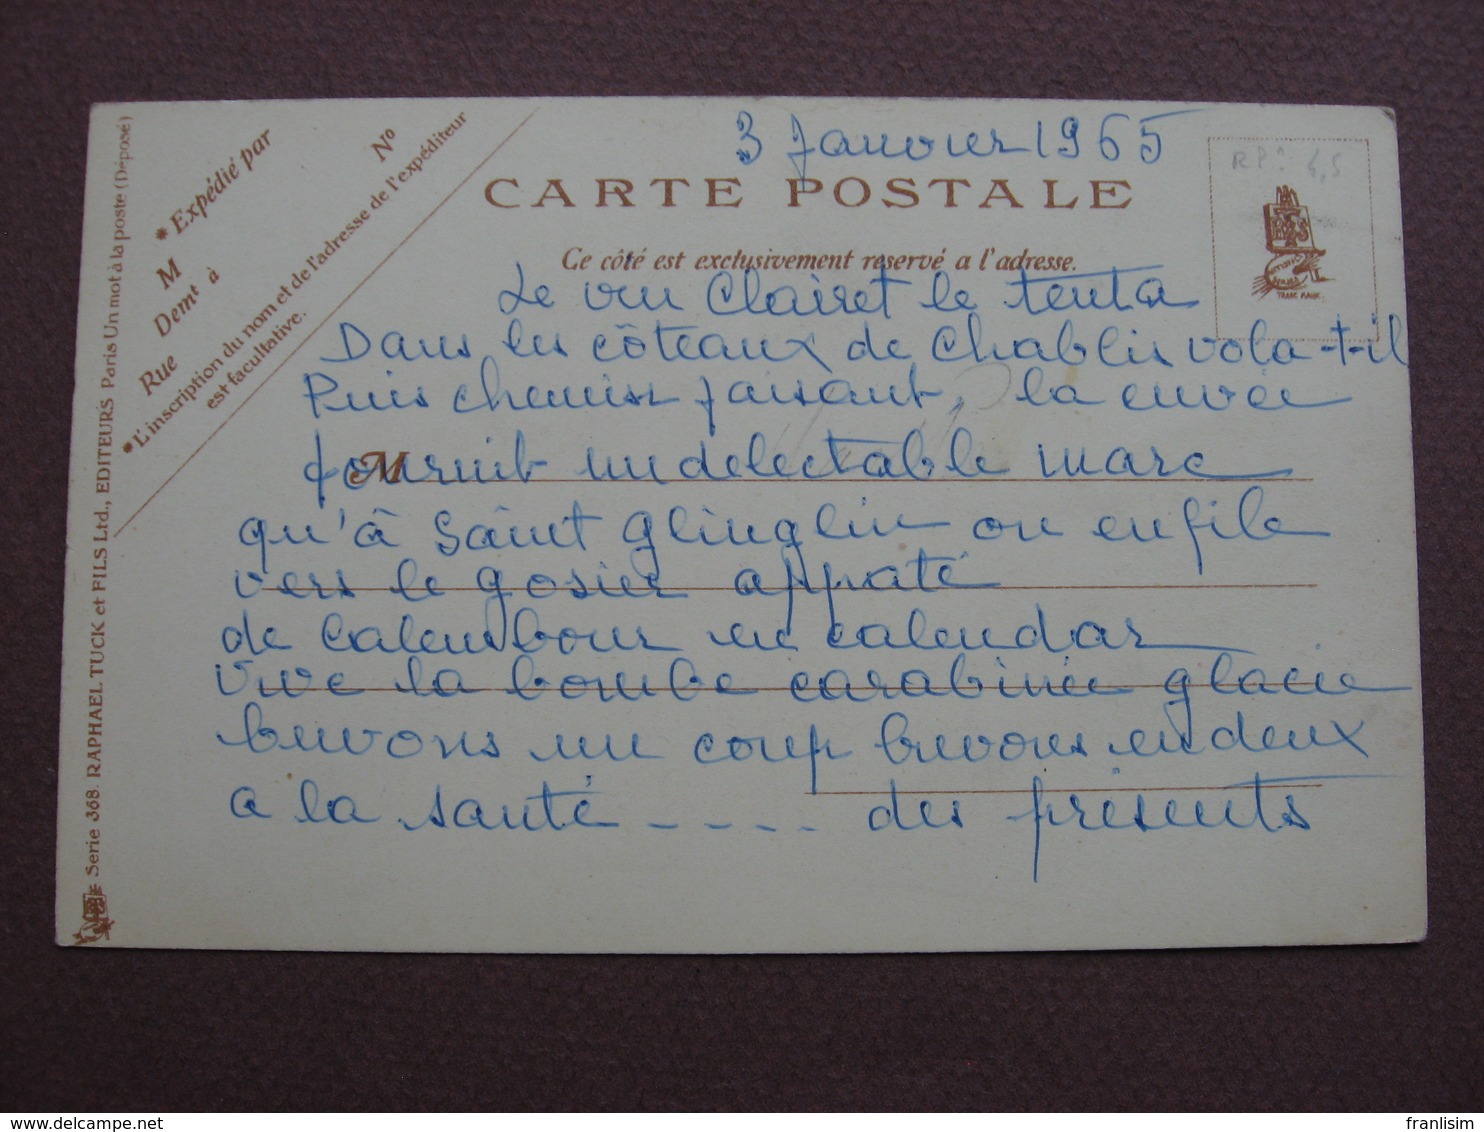 3 Janvier 1965
CARTE POSTALE
Ce côté est exclusivement reservé a l'adresse.
* Expédié par
M
Nº
Demt à
Rue
* L'inscription du nom et de l'adresse de l'expéditeur
est facultative.
RP: 4,5
TRADE MARK
Le vin Clairet le tenta
Dans les côteaux de Chablis vola-t-il
Puis chemin faisant, la cuvée
M
fournit un delectable marc
qu'à Saint Glinglin on enfile
vers le gosier appaté
de Calembour en calendar
Vive la bombe carabinée glacée
buvons un coup buvons en deux
a la santé ---- des présents
Serie 368. RAPHAEL TUCK et FILS Ltd., EDITEURS Paris Un mot à la poste (Déposé)
franlisim